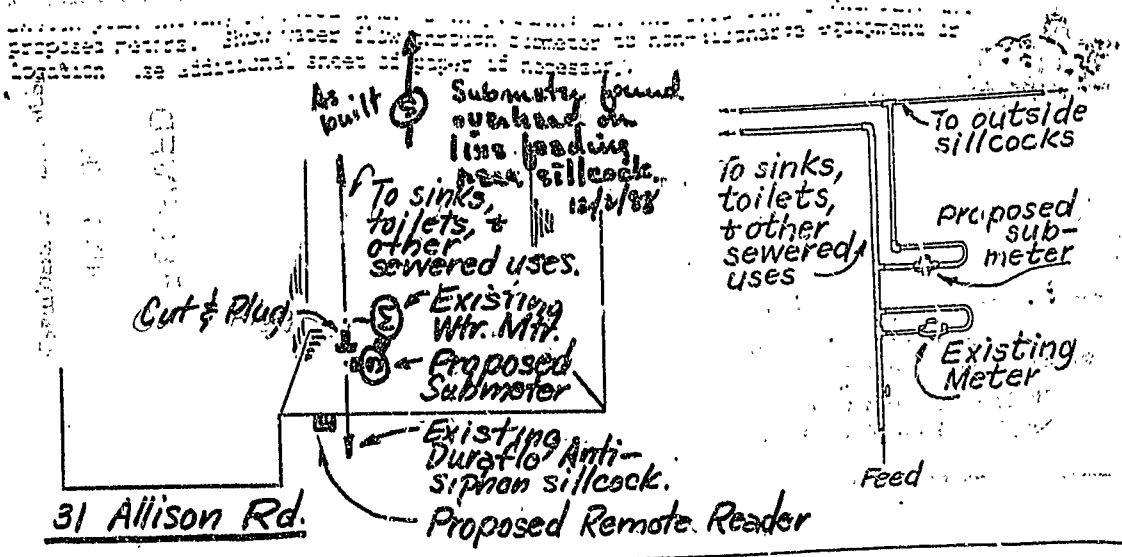 proposed meters. Show water flow through submeter to non-discharge equipment or
location. Use additional sheet of paper if necessary.
As
built
S
Submeter found
overhead on
line feeding
near sillcock.
To sinks,
toilets, &
other
sewered uses.
Cut & Plug
M
Existing
Wtr. Mtr.
S
Proposed
Submeter
Existing
Duraflo Anti-
siphon sillcock.
Proposed Remote Reader
31 Allison Rd.
To outside
sillcocks
To sinks,
toilets,
& other
sewered
uses
proposed
sub-
meter
Existing
Meter
Feed